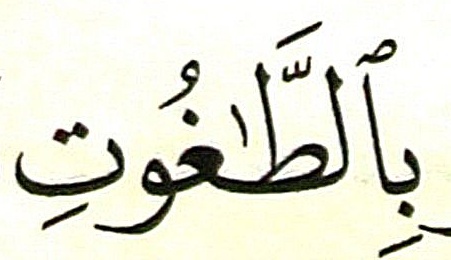 بِٱلطَّٰغُوتِ